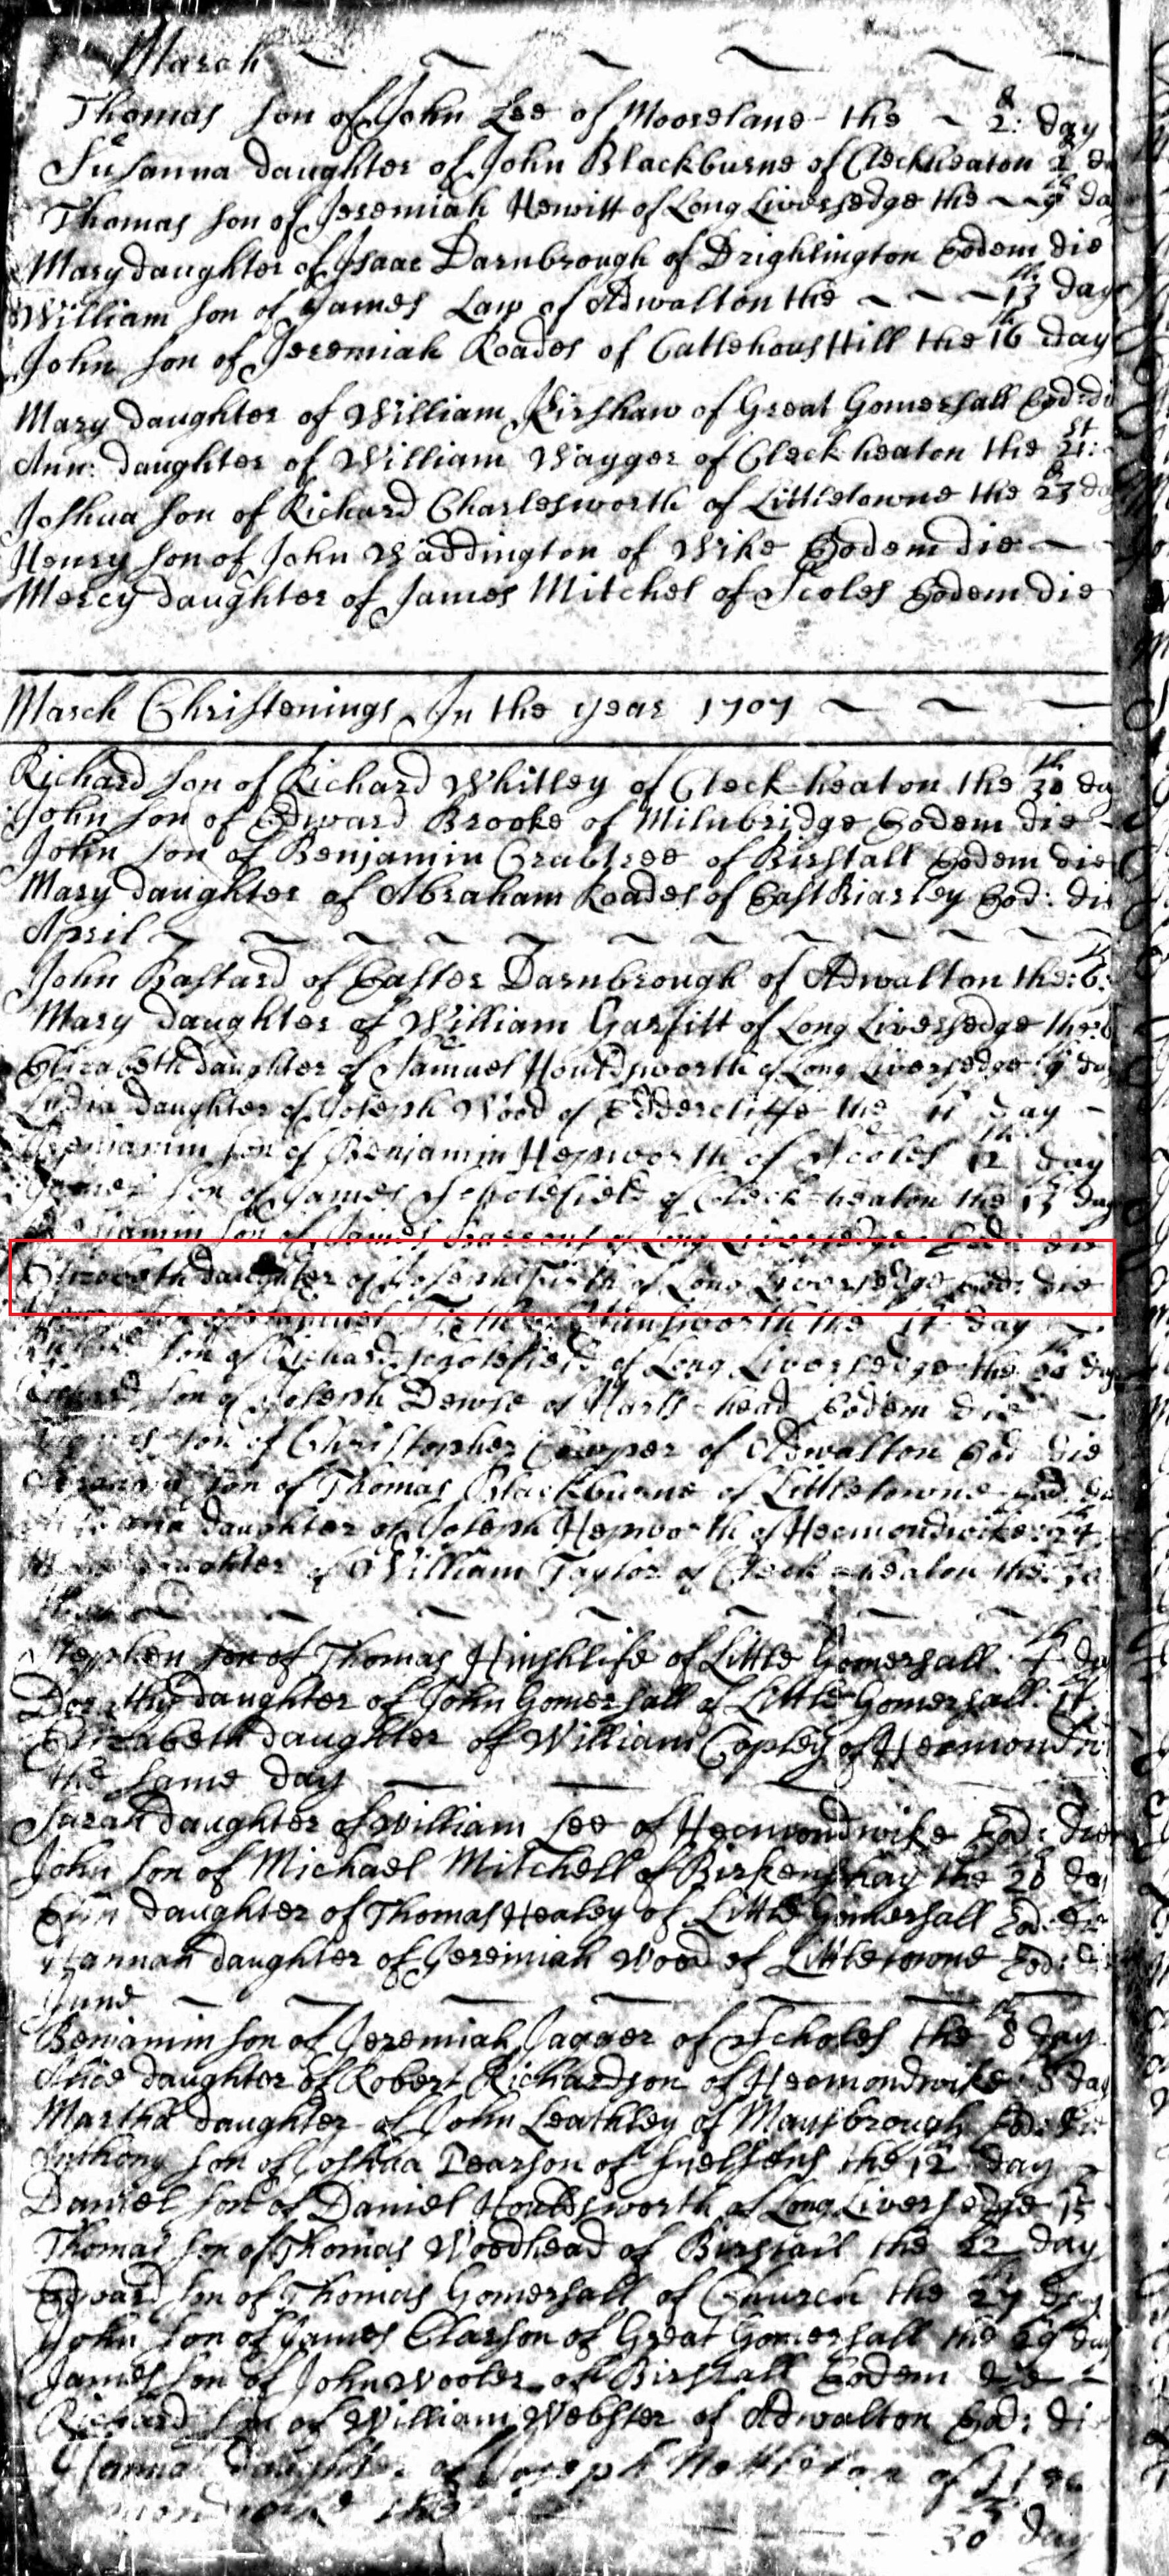 March
Thomas son of John Lee of Mooreland the 2d: day
Susanna daughter of John Blackburne of Cleckheaton 2d da
Thomas son of Jeremiah Hewitt of Long Liversedge the 9th da
Mary daughter of Isaac Darnbrough of Drighlington Eodem die
William son of James Law of Adwalton the 13th day
John son of Jeremiah Roades of Cattlehous Hill the 16th day
Mary daughter of William Kirshaw of Great Gomersall Eod: di
Ann: daughter of William Wagger of Cleckheaton the 21st:
Joshua son of Richard Charlesworth of Littletowne the 23d da
Henry son of John Waddington of Wike Eodem die
Mercy daughter of James Mitchel of Scoles Eodem die
March Christenings In the year 1707
Richard son of Richard Whitley of Cleck-heaton the 30th da
John son of Edward Brooke of Milnbridge Eodem die
John son of Benjamin Crabtree of Birstall Eodem die
Mary daughter of Abraham Roades of East Biarley Eod: die
April
John Bastard of Easter Darnbrough of Adwalton the: 6:
Mary daughter of William Garfitt of Long Liversedge the
Elizabeth daughter of Samuel Houldsworth of Long Liversedge 9 day
Lydia daughter of Joseph Wood of the 11 day
Benjamin son of Benjamin Hepworth of Scoles 12th day
James son of James Scholefield of Cleck-heaton the 13 day
Benjamin son of James of Long Liversedge Eod: die
Elizabeth daughter of Joseph Firth of Long Liversedge Eod: die
son of Samuel of Hunsworth the day
son of Richard Scholefield of Long Liversedge the day
son of Joseph Dewse of Harts-head Eodem die
son of Christopher Cowper of Adwalton Eod die
son of Thomas Blackburne of Littletowne Eod: di
daughter of Joseph Hepworth of Heemondwike: 27
daughter of William Taylor of Cleck-heaton the
Stephen son of Thomas Hinshlife of Little Gomersall: da
Dorothy daughter of John Gomersall of Little Gomersall:
Elizabeth daughter of William Copley of Heemondwi
the same day
Sarah daughter of William Lee of Heemondwike Eod: die
John son of Michael Mitchell of Birkenshay the 26 day
daughter of Thomas Healey of Little Gomersall Eod: die
Hannah daughter of Jeremiah Wood of Littletowne Eod: di
June
Beniamin son of Jeremiah Jagger of Scholes the 8th day
Alice daughter of Robert Richardson of Heemondwike: 8 day
Martha daughter of John Leathley of Eod: di
Anthony son of Joshua Pearson of the 12 day
Daniel son of Daniel Houldsworth of Long Liversedge 15
Thomas son of Thomas Woodhead of Birstall the 22 day
Edward son of Thomas Gomersall of Church the 27 day
John son of James Clarson of Great Gomersall the 29 day
James son of John Wooler of Birstall Eodem die
Richard son of William Webster of Adwalton Eod: di
Hanna daughter of Joseph Nettleton of Hee
mondwike the
30 day